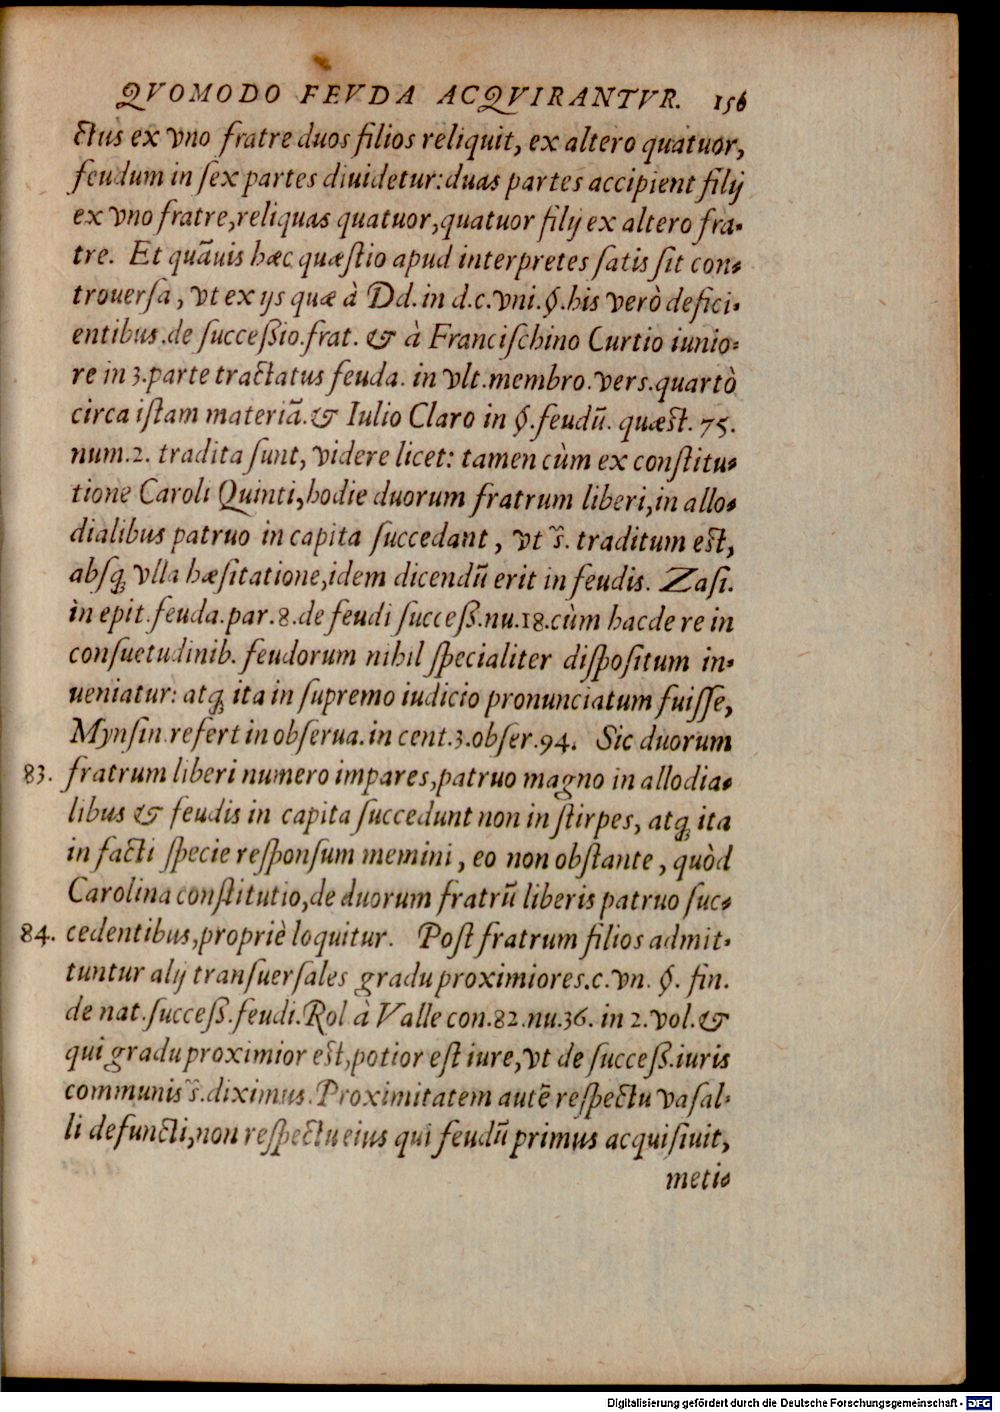 QVOMODO FEVDA ACQVIRANTVR. 156
ctus ex vno fratre duos filios reliquit, ex altero quatuor,
feudum in sex partes diuidetur: duas partes accipient filij
ex vno fratre, reliquas quatuor, quatuor filij ex altero fra-
tre. Et quãuis hæc quæstio apud interpretes satis sit con-
trouersa, vt ex ijs quæ à Dd. in d.c. vni. §. his verò defici-
entibus. de succeßio. frat. & à Francischino Curtio iunio-
re in 3. parte tractatus feuda. in vlt. membro. vers. quartò
circa istam materiã. & Iulio Claro in §. feudũ. quæst. 75.
num. 2. tradita sunt, videre licet: tamen cùm ex constitu-
tione Caroli Quinti, hodie duorum fratrum liberi, in allo-
dialibus patruo in capita succedant, vt s̃. traditum est,
absq; vlla hæsitatione, idem dicendũ erit in feudis. Zasi.
in epit. feuda. par. 8. de feudi succeß. nu. 18. cùm hac de re in
consuetudinib. feudorum nihil specialiter dispositum in-
ueniatur: atq; ita in supremo iudicio pronunciatum fuisse,
Mynsin. refert in obserua. in cent. 3. obser. 94. Sic duorum
83. fratrum liberi numero impares, patruo magno in allodia-
libus & feudis in capita succedunt non in stirpes, atq; ita
in facti specie responsum memini, eo non obstante, quòd
Carolina constitutio, de duorum fratrũ liberis patruo suc-
84. cedentibus, propriè loquitur. Post fratrum filios admit-
tuntur alij transuersales gradu proximiores. c. vn. §. fin.
de nat. succeß. feudi. Rol à Valle con. 82. nu. 36. in 2. vol. &
qui gradu proximior est, potior est iure, vt de succeß. iuris
communis s̃. diximus. Proximitatem autẽ respectu vasal-
li defuncti, non respectu eius qui feudũ primus acquisiuit,
meti-
Digitalisierung gefördert durch die Deutsche Forschungsgemeinschaft - DFG